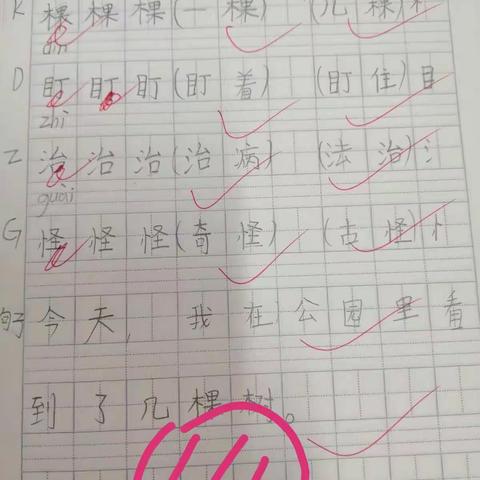 K 棵 棵 棵 (一 棵) (几 棵) 木
dīn
D 盯 盯 盯 (盯 着) (盯 住) 目
zhì
Z 治 治 治 (治 病) (法 治) 氵
guài
G 怪 怪 怪 (奇 怪) (古 怪) 忄
句子 今 天, 我 在 公 园 里 看
到 了 几 棵 树。